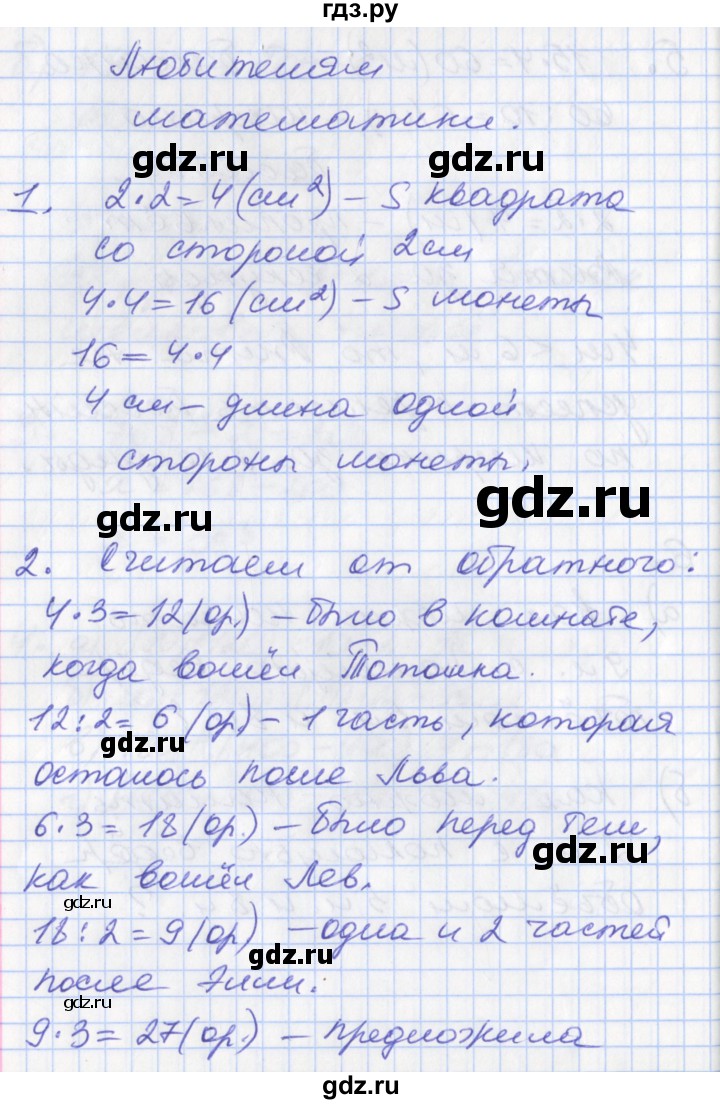 гдз.ру
Любителям
математики.
gdz.ru
gdz.ru
1. 2·2=4(см²) – S квадрата
со стороной 2см
4·4=16(см²) – S монеты
16=4·4
4 см – длина одной
стороны монеты.
gdz.ru
gdz.ru
2. Считаем от обратного:
4·3=12(ор.) – было в комнате,
когда вошёл Тотошка.
12:2=6(ор) – 1 часть, которая
gdz.ru
осталось после Льва.
6·3=18(ор.) – было перед тем,
gdz.ru
как вошёл Лев.
gdz.ru
18:2=9(ор) – одна и 2 частей
gdz.ru
после Элли.
gdz.ru
9·3=27(ор.) – предложила
gdz.ru